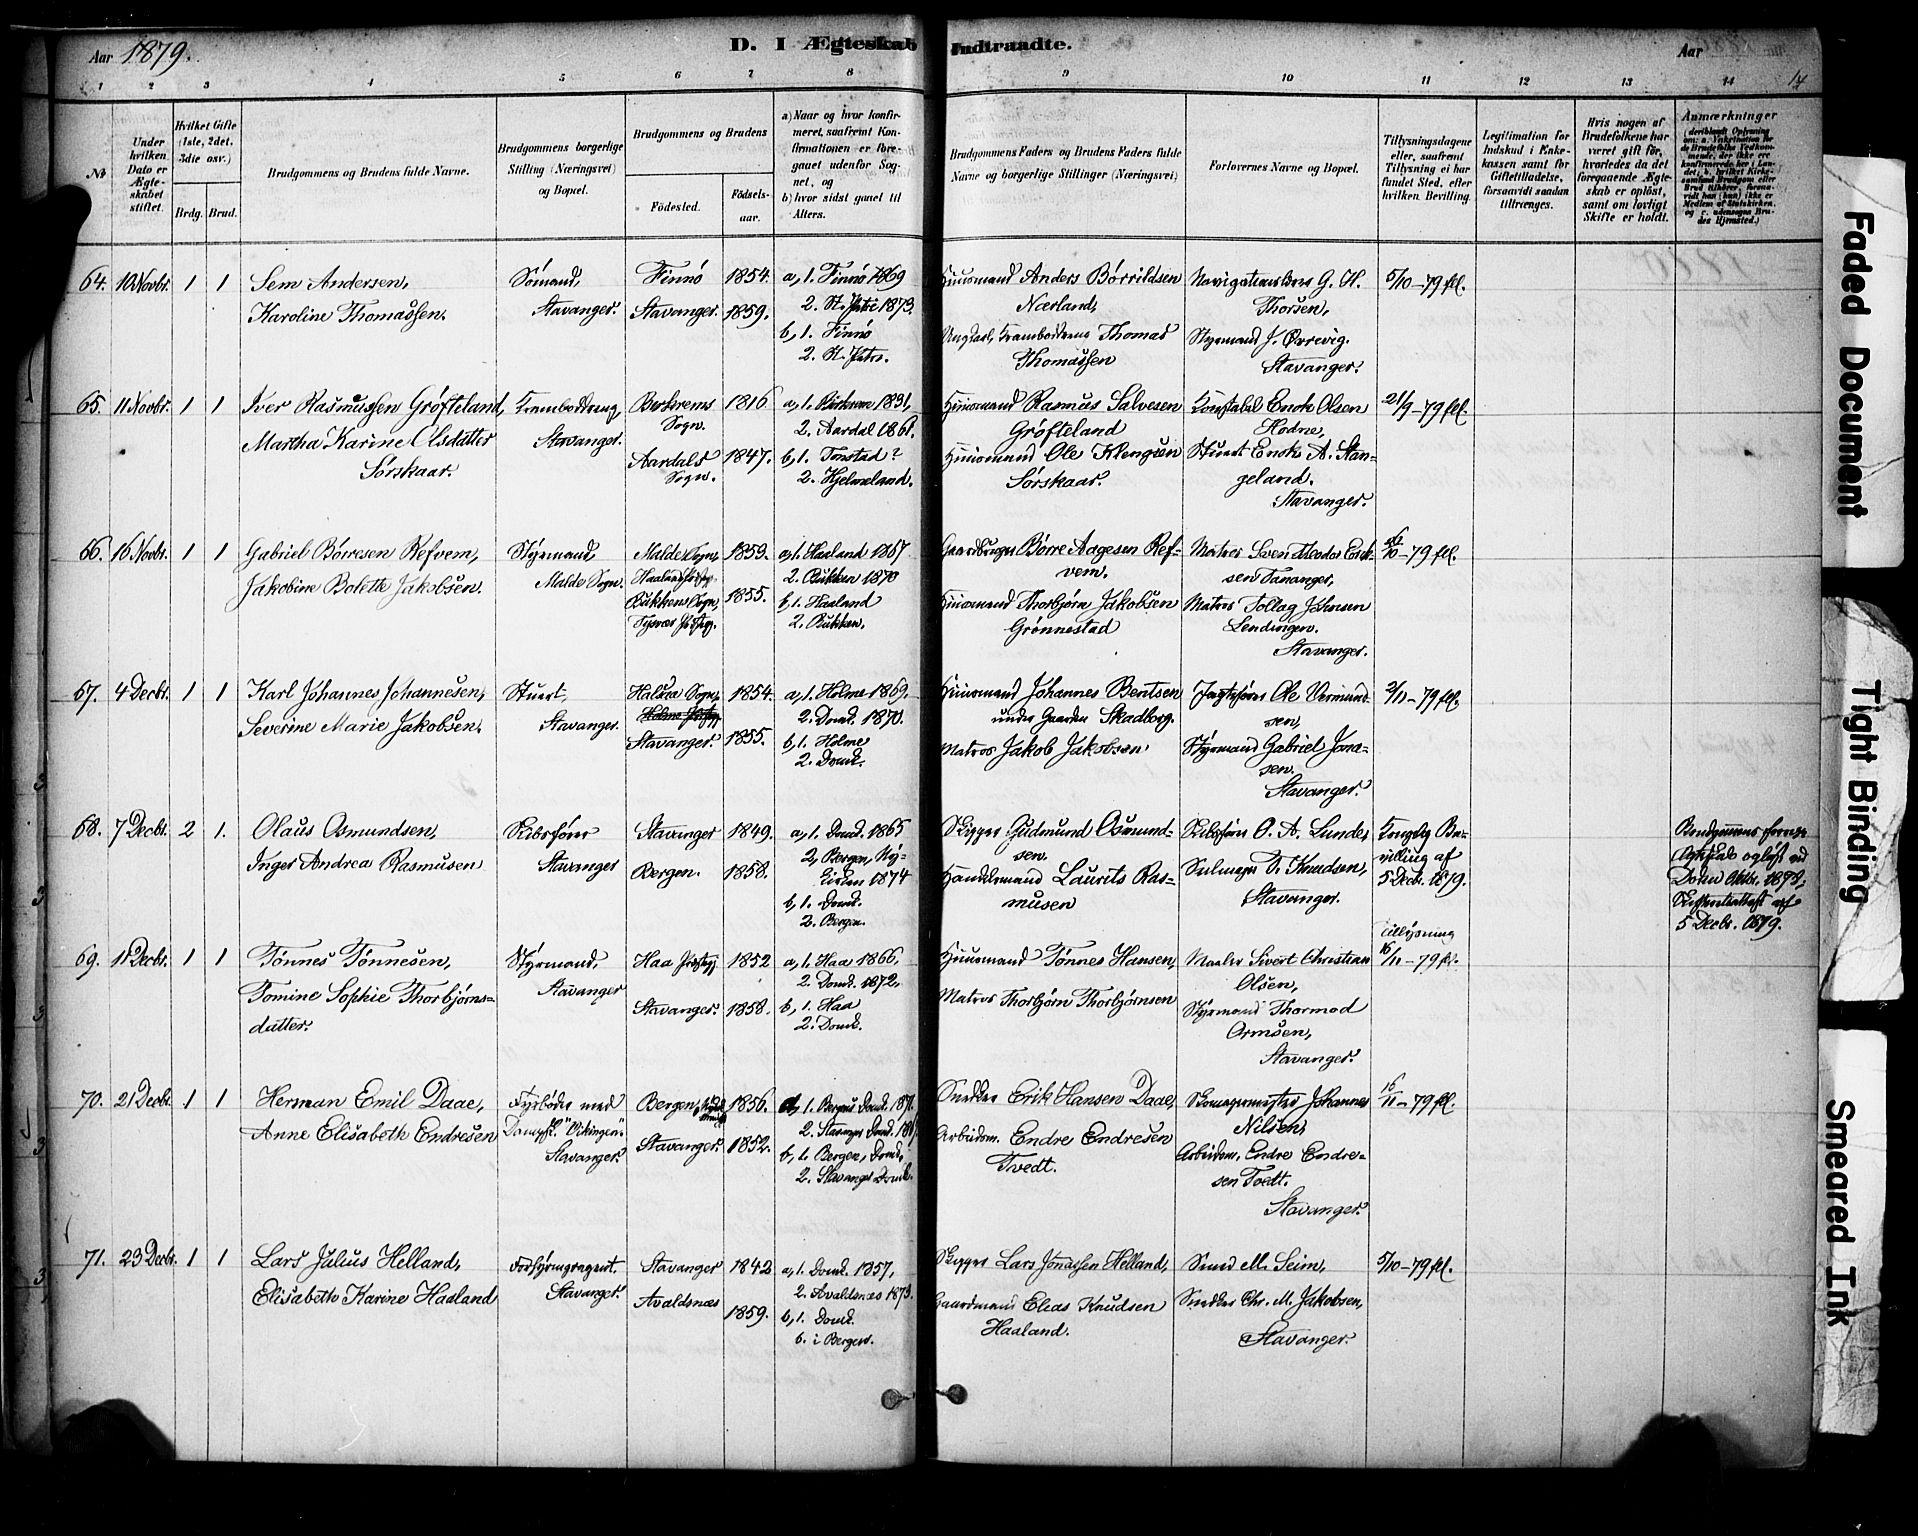 Aar 1879. D. I Ægteskab Indtraadte. Aar
1 2 3 4 5 6 7 8 9 10 11 12 13 14
No
Under hvilken Dato er Ægteskabet stiftet.
Hvilket Gifte (1ste, 2det, 3die osv.)
Brdg. Brud.
Brudgommens og Brudens fulde Navne.
Brudgommens borgerlige Stilling (Næringsvei) og Bopæl.
Brudgommens og Brudens
Fødested. Fødselsaar.
a) Naar og hvor konfirmeret, saafremt Konfirmationen er foregaaet udenfor Sognet, og
b) hvor sidst gaaet til Alters.
Brudgommens Faders og Brudens Faders fulde Navne og borgerlige Stillinger (Næringsvei)
Forlovernes Navne og Bopæl.
Tillysningsdagene eller, saafremt Tillysning ei har fundet Sted, efter hvilken Bevilling.
Legitimation for Indskud i Enkekassen samt for Giftetilladelse, forsaavidt saadan tiltrænges.
Hvis nogen af Brudefolkene har været gift før, hvorledes da det foregaaende Ægteskab er opløst, samt om lovligt Skifte er holdt.
Anmærkninger
64. 10 Novbr. 1 1
Sem Andersen,
Karoline Thomassen.
Sømand,
Stavanger.
Finnø 1854.
Stavanger. 1859.
a, 1. Finnø 1869
2. St. Petri 1873.
b, 1. Finnø
2. St. Petri.
Huusmand Anders Børrildsen
Nærland,
Thomas
Thomassen
G. H.
Thorsen,
Styrmand J. Ørrevig.
Stavanger.
5/10 – 79 fl.
65. 11 Novbr. 1 1
Iver Rasmussen Grøfteland,
Martha Karine Olsdatter
Sørskaar.
Stavanger.
Sogn. 1816
Aardals 1847.
Sogn.
a, 1. 1831,
2. Aardal 1861.
b, 1. Tonstad?
2. Hjelmeland.
Huusmand Rasmus Salvesen
Grøfteland
Huusmand Ole Klengsen
Sørskaar.
Konstabel Enok Olsen
Hodne,
Stuert Enok A. Stan-
geland.
Stavanger.
21/9 – 79 fl.
66. 16 Novbr. 1 1
Gabriel Børresen Refvem,
Jakobine Bolette Jakobsen.
Styrmand,
Malde Sogn.
Malde Sogn, 1859.
Bukken Sogn, 1855.
a, 1. Haaland 1867
2. Bukken 1870
b, 1. Haaland
2. Bukken.
Gaardbruger Børre Aagesen Ref-
vem.
Huusmand Thorbjørn Jakobsen
Grønnestad
Matros Sven
sen Tananger,
Matros Tollag Johnsen
Lendingen.
Stavanger.
– 79 fl.
67. 4 Decbr. 1 1
Karl Johannes Johannesen,
Severine Marie Jakobsen.
Stuert,
Stavanger.
Halsaa Sogn, 1854.
Stavanger. 1855.
a, 1. Holme 1869.
2. Domk. 1870.
b, 1. Holme
2. Domk.
Huusmand Johannes Bentsen
under Gaarden Skadberg.
Matros Jakob Jakobsen
Jagtefører Ole Vermund-
sen,
Styrmand Gabriel Jona-
sen.
Stavanger.
2/11 – 79 fl.
68. 7 Decbr. 2 1.
Olaus Osmundsen,
Inger Andrea Rasmusen
Skibsfører
Stavanger
Stavanger 1849.
Bergen. 1858.
a, 1. Domk. 1865
2, Bergen, Ny-
kirken 1874
b, 1. Domk.
2. Bergen.
Skipper Gudmund Osmund-
sen.
Handelsmand Laurits Ras-
musen
Skibsfører O. A. Lunde,
Seilmager T. Knudsen,
Stavanger.
Kongelig Be-
villing af
5 Decbr. 1879.
Brudgommens forrige
Ægteskab opløst ved
Døden Oktbr. 1878,
Skifteattest af
5 Decbr. 1879.
69. 11 Decbr. 1 1
Tønnes Tønnesen,
Tomine Sophie Thorbjørns-
datter.
Styrmand,
Stavanger
Haa 1852
Stavanger. 1858.
a, 1. Haa 1866,
2. Domk. 1872,
b, 1. Haa
2. Domk.
Huusmand Tønnes Hansen,
Matros Thorbjørn Thorbjørnsen
Maaler Sivert Christian
Olsen,
Styrmand Thormod
Ormsen,
Stavanger.
Tillysning
16/11 – 79 fl.
70. 21 Decbr. 1 1
Herman Emil Daae,
Anne Elisabeth Endresen
Fyrbøder med
Dampsk. "Vikingen".
Stavanger.
Bergen, 1856.
Stavanger. 1852.
a, 1. Bergens Domk.
2. Stavanger Domk.
b, 1. Bergen, Domk,
2. Stavanger Domk.
Snedker Erik Hansen Daae,
Arbeidsm. Endre Endresen
Tvedt.
Skomagermester Johannes
Nilsen,
Arbeidsm. Endre Endre-
sen Tvedt.
Stavanger.
16/11 – 79 fl.
71. 23 Decbr. 1 1
Lars Julius Helland,
Elisabeth Karine Haaland
Forsyringsagent.
Stavanger.
Stavanger 1842
Avaldsnæs 1859.
a, 1. Domk. 1857,
2. Avaldsnæs 1873.
b, 1. Domk.
6. i Bergen.
Skipper Lars Jonassen Helland,
Gaardmand Elias Knudsen
Haaland.
Smed M. Seim,
Snedker Chr. M. Jakobsen,
Stavanger.
5/10 – 79 fl.
Faded Document
Tight Binding
Smeared Ink